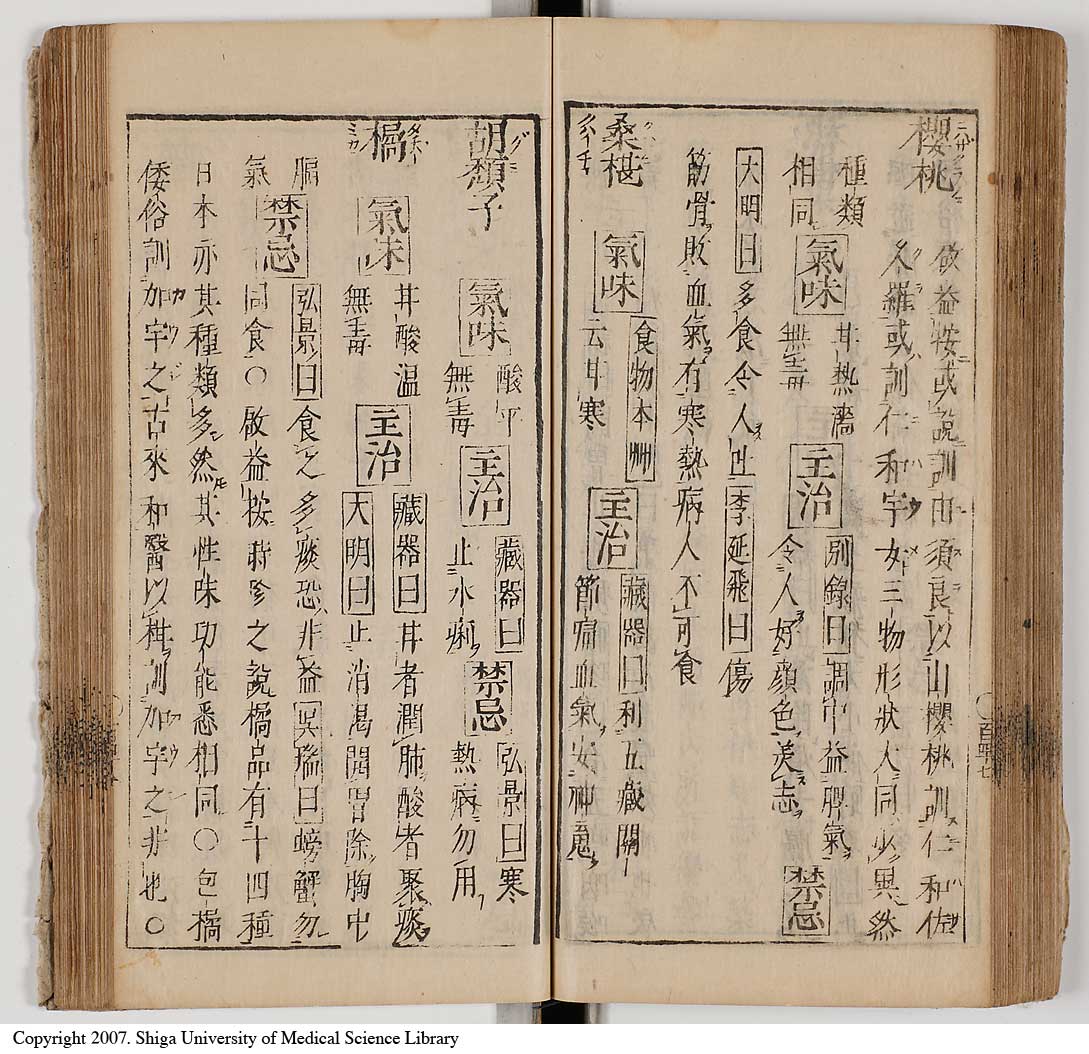 櫻桃 啟益按或說訓由須良以山櫻桃訓仁和佐
久羅或訓仁和宇女三物形狀大同少異然
種類
相同 氣味 甘熱濇
無毒 主治 別錄曰調中益脾氣
令人好顏色美志 禁忌
大明曰多食令人吐李延飛曰傷
筋骨敗血氣有寒熱病人不可食
桑椹 氣味 食物本艸
云甘寒 主治 藏器曰利五藏關
節痛血氣安神䰟
百四十七
胡頹子 氣味 酸平
無毒 主治 藏器曰
止水痢 禁忌 弘景曰寒
熱病勿用
橘 氣味 甘酸温
無毒 主治 藏器曰甘者潤肺酸者聚痰
大明曰止消渴開胃除胸中
膈
氣 禁忌 弘景曰食之多痰恐非益吳瑞曰螃蟹勿
同食〇啟益按時珍之說橘品有十四種
日本亦其種類多然其性味功能悉相同〇包橘
倭俗訓加宇之古來和醫以柑訓加宇之非也〇
Copyright 2007. Shiga University of Medical Science Library